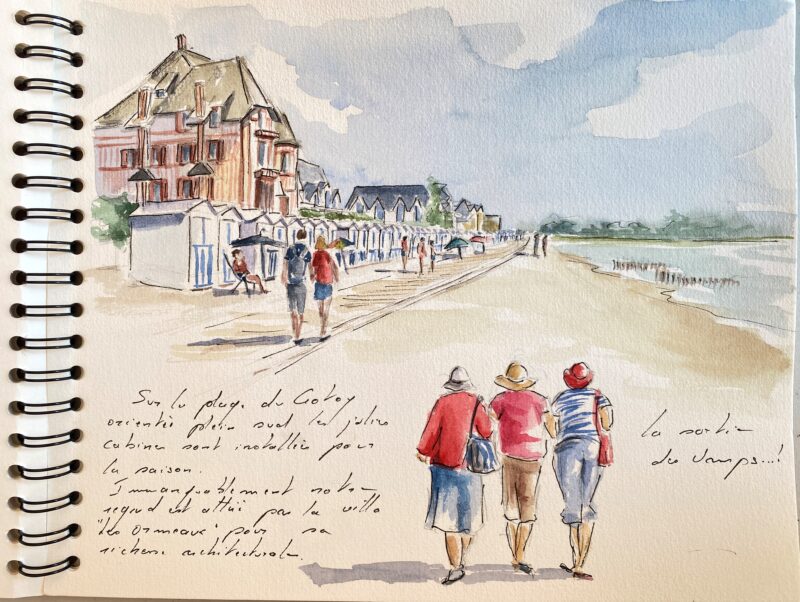 Sur la plage du Crotoy
orientée plein sud les jolies
cabines sont installées pour
la saison.
Immanquablement notre
regard est attiré par la villa
"les ormeaux" pour sa
richesse architecturale.
la sortie
des vamps...!